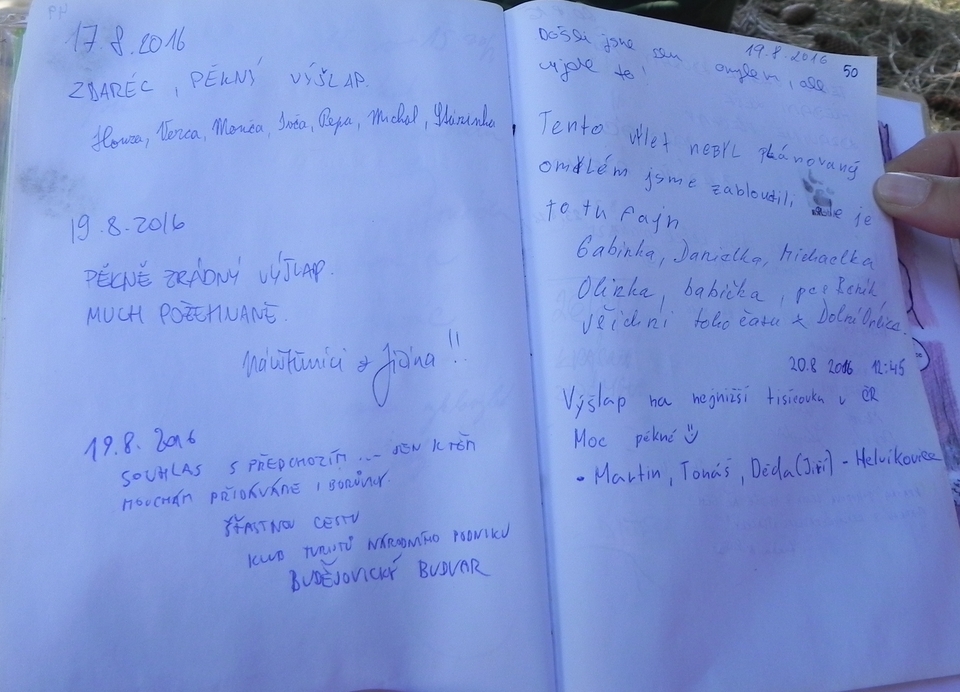 17.8.2016
ZDARÉC, PĚKNÝ VÝŠLAP.
Honza, Verča, Monča, Ivča, Pepa, Michal,
19.8.2016
PĚKNĚ ZRÁDNÝ VÝŠLAP.
MUCH POŽEHNANĚ.
Návštěvníci z Jičína!!
19.8.2016
SOUHLAS S PŘEDCHOZÍM ... JEN K TĚM
MOUCHÁM PŘIDÁVÁME I BORŮVKY.
ŠŤASTNOU CESTU
KLUB TURISTŮ NÁRODNÍHO PODNIKU
BUDĚJOVICKÝ BUDVAR
19.8.2016
50
Došli jsme sem omylem, ale
to!
Tento výlet nebyl plánovaný
omylem jsme zabloudili ale je
to tu fajn
Gabinka, Danielka, Michaelka
Olinka, babička, pes
všichni toho času z Dolní Orlice.
20.8 2016 12:45
Výšlap na nejnižší tisícovku v ČR
Moc pěkné
• Martin, Tomáš, Děda (Jiří) - Helvíkovice